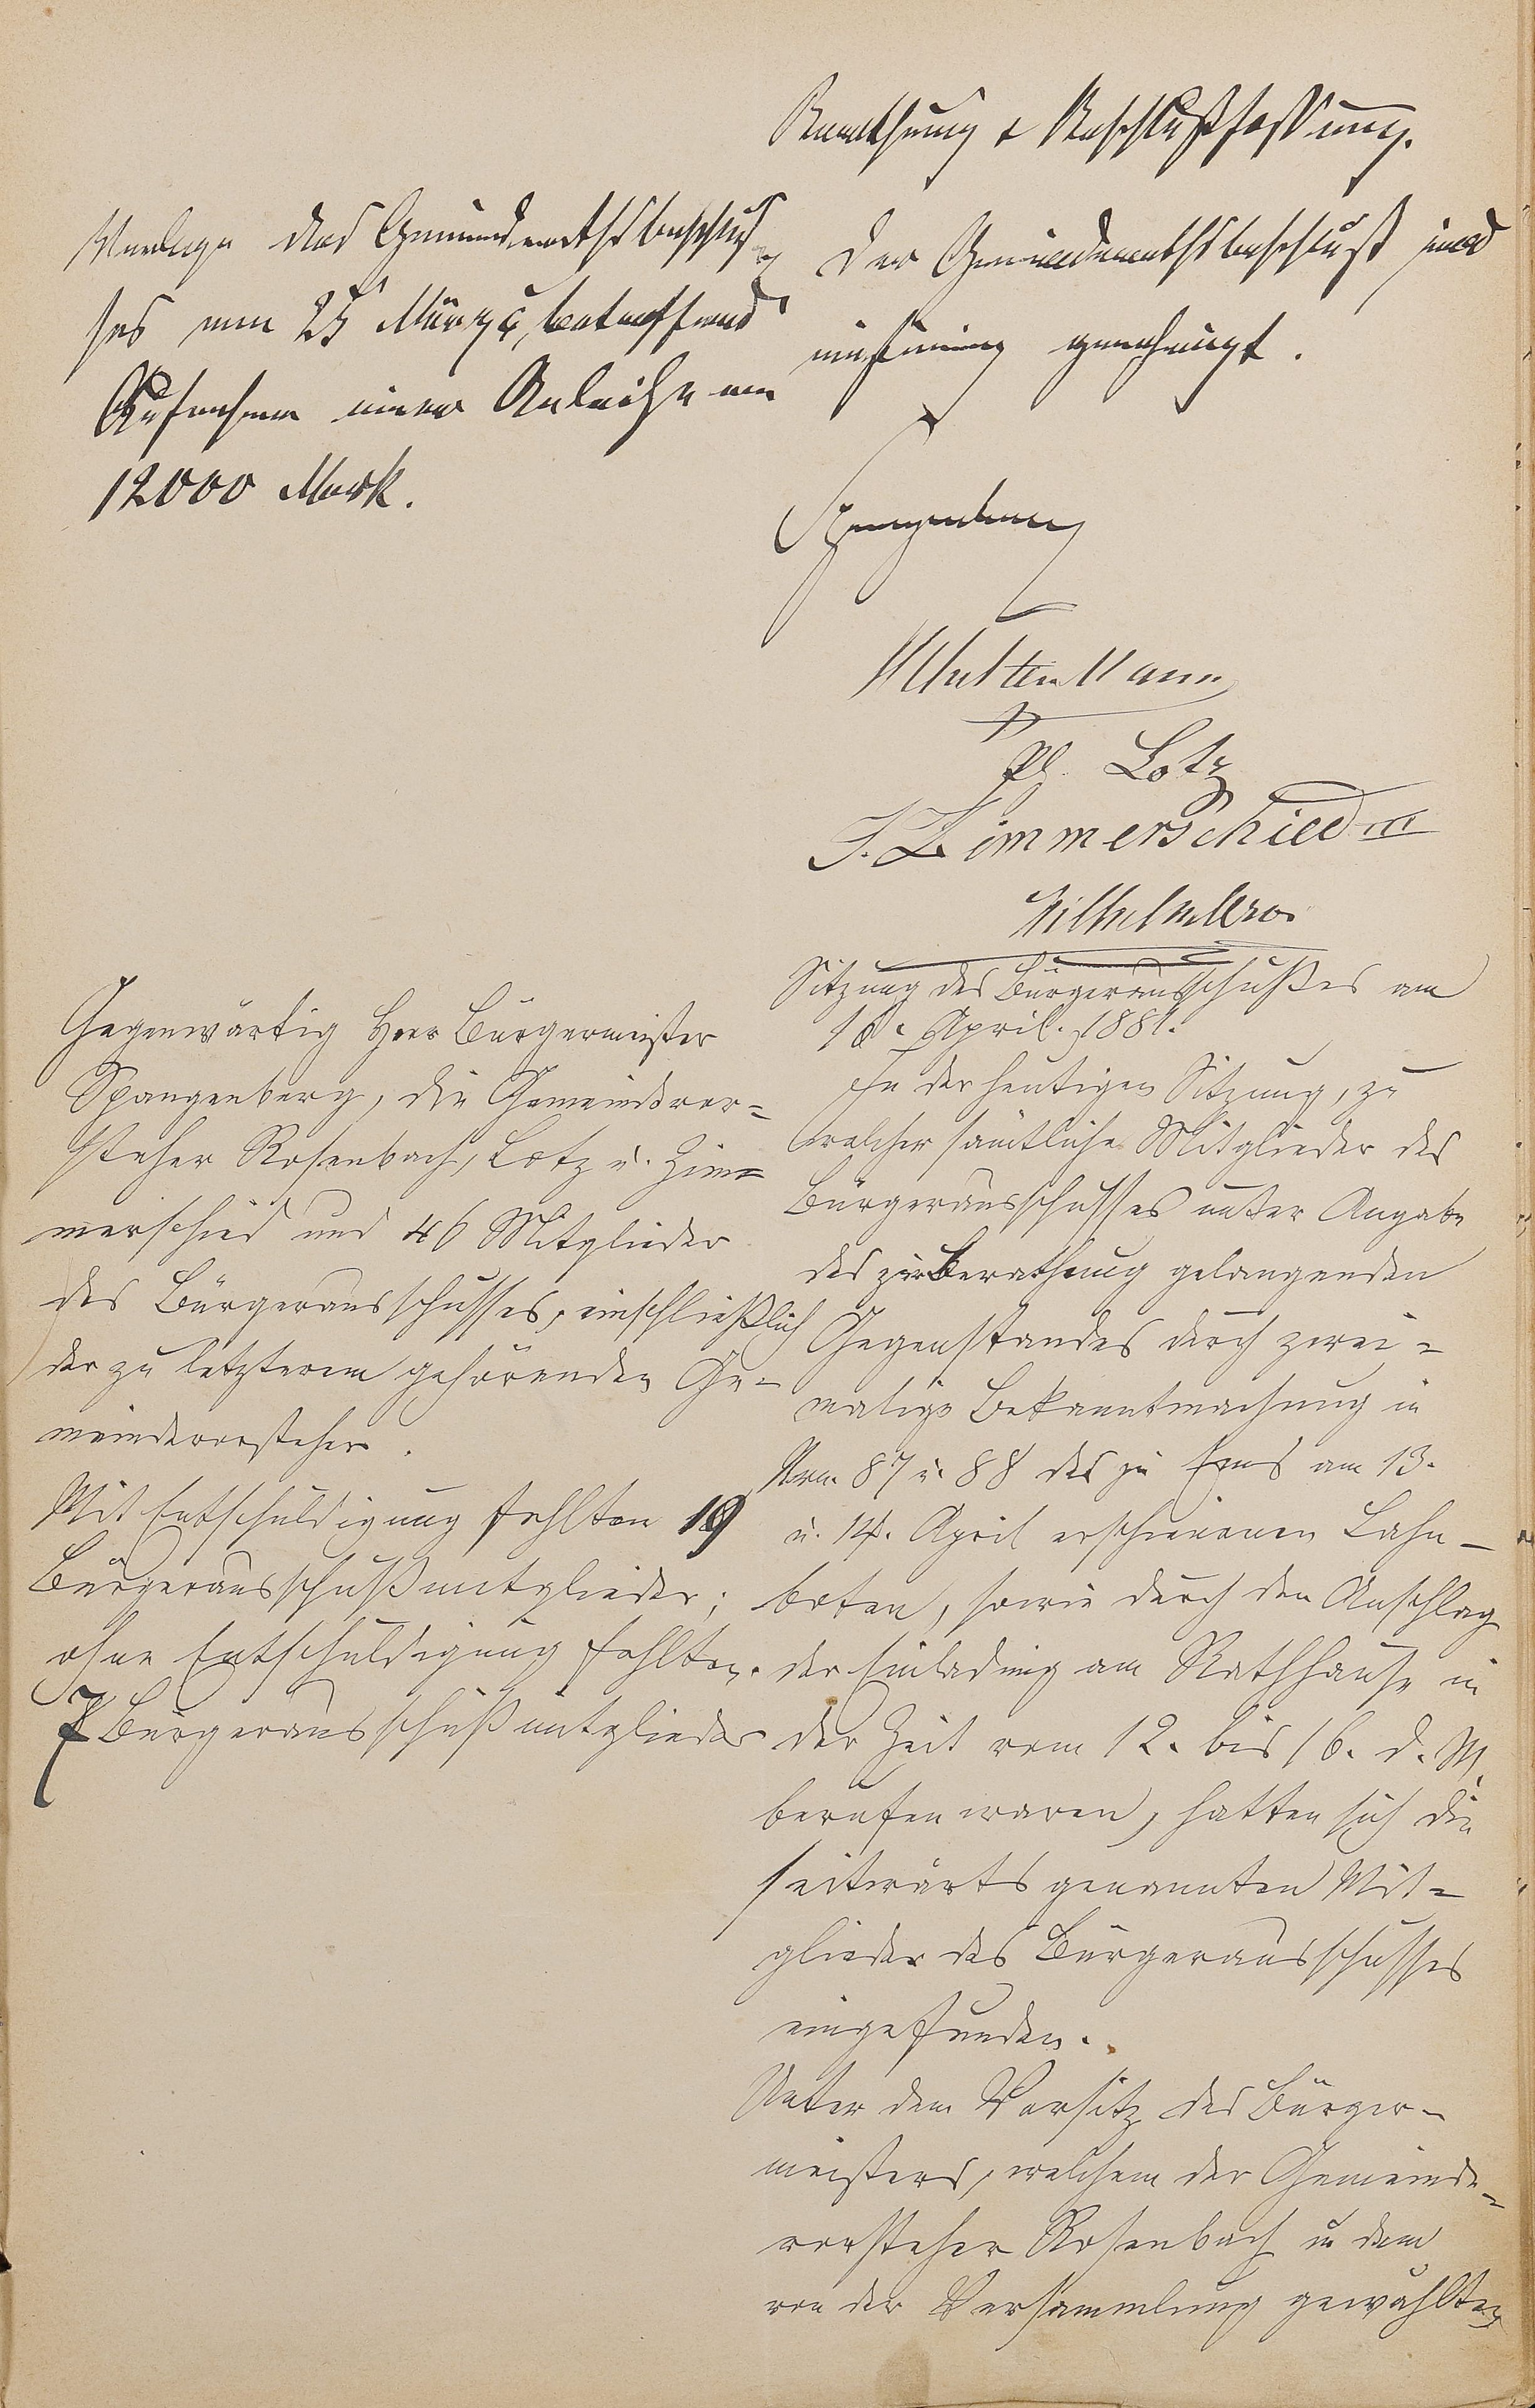 Berathung & Beschlußfassung.
Vorlage des Gemeinderathsbeschlus
ses vom 25 März c, betreffend
Aufnahme einer Anleihe von
12000 Mark.
Der Gemeinderathsbeschluß wird
einstimmig genehmigt.
Spangenberg
Ph. Lotz
J. Zimmerschied III
Wilhelm
Gegenwärtig Herr Bürgermeister
Spangenberg, die Gemeindevor-
steher Rosenbach, Lotz u. Zim-
merschied und 46 Mitglieder
des Bürgerausschusses, einschließlich
der zu letzterem gehörenden Ge-
meindevorsteher.
Mit Entschuldigung fehlten 19
Bürgerausschußmitglieder;
ohne Entschuldigung fehlten
7 Bürgerausschußmitglieder
Sitzung des Bürgerausschußes am
April 1881.
In der heutigen Sitzung, zu
welcher sämtliche Mitglieder des
Bürgerausschusses unter Angabe
des zur Berathung gelangenden
Gegenstandes durch zwei-
malige Bekanntmachung in
Nrn. 87 u. 88 des zu Ems am 13.
u. 14. April erschienenen Lahn-
boten, sowie durch den Anschlag
der Einladung am Rathhause in
der Zeit vom 12. bis 16. d. M.
berufen waren, hatten sich die
seitwärts genannten Mit-
glieder des Bürgerausschusses
eingefunden.
Unter dem Vorsitz des Bürger-
meisters, welchem der Gemeinde-
vorsteher Rosenbach u dem
von der Versammlung gewählten